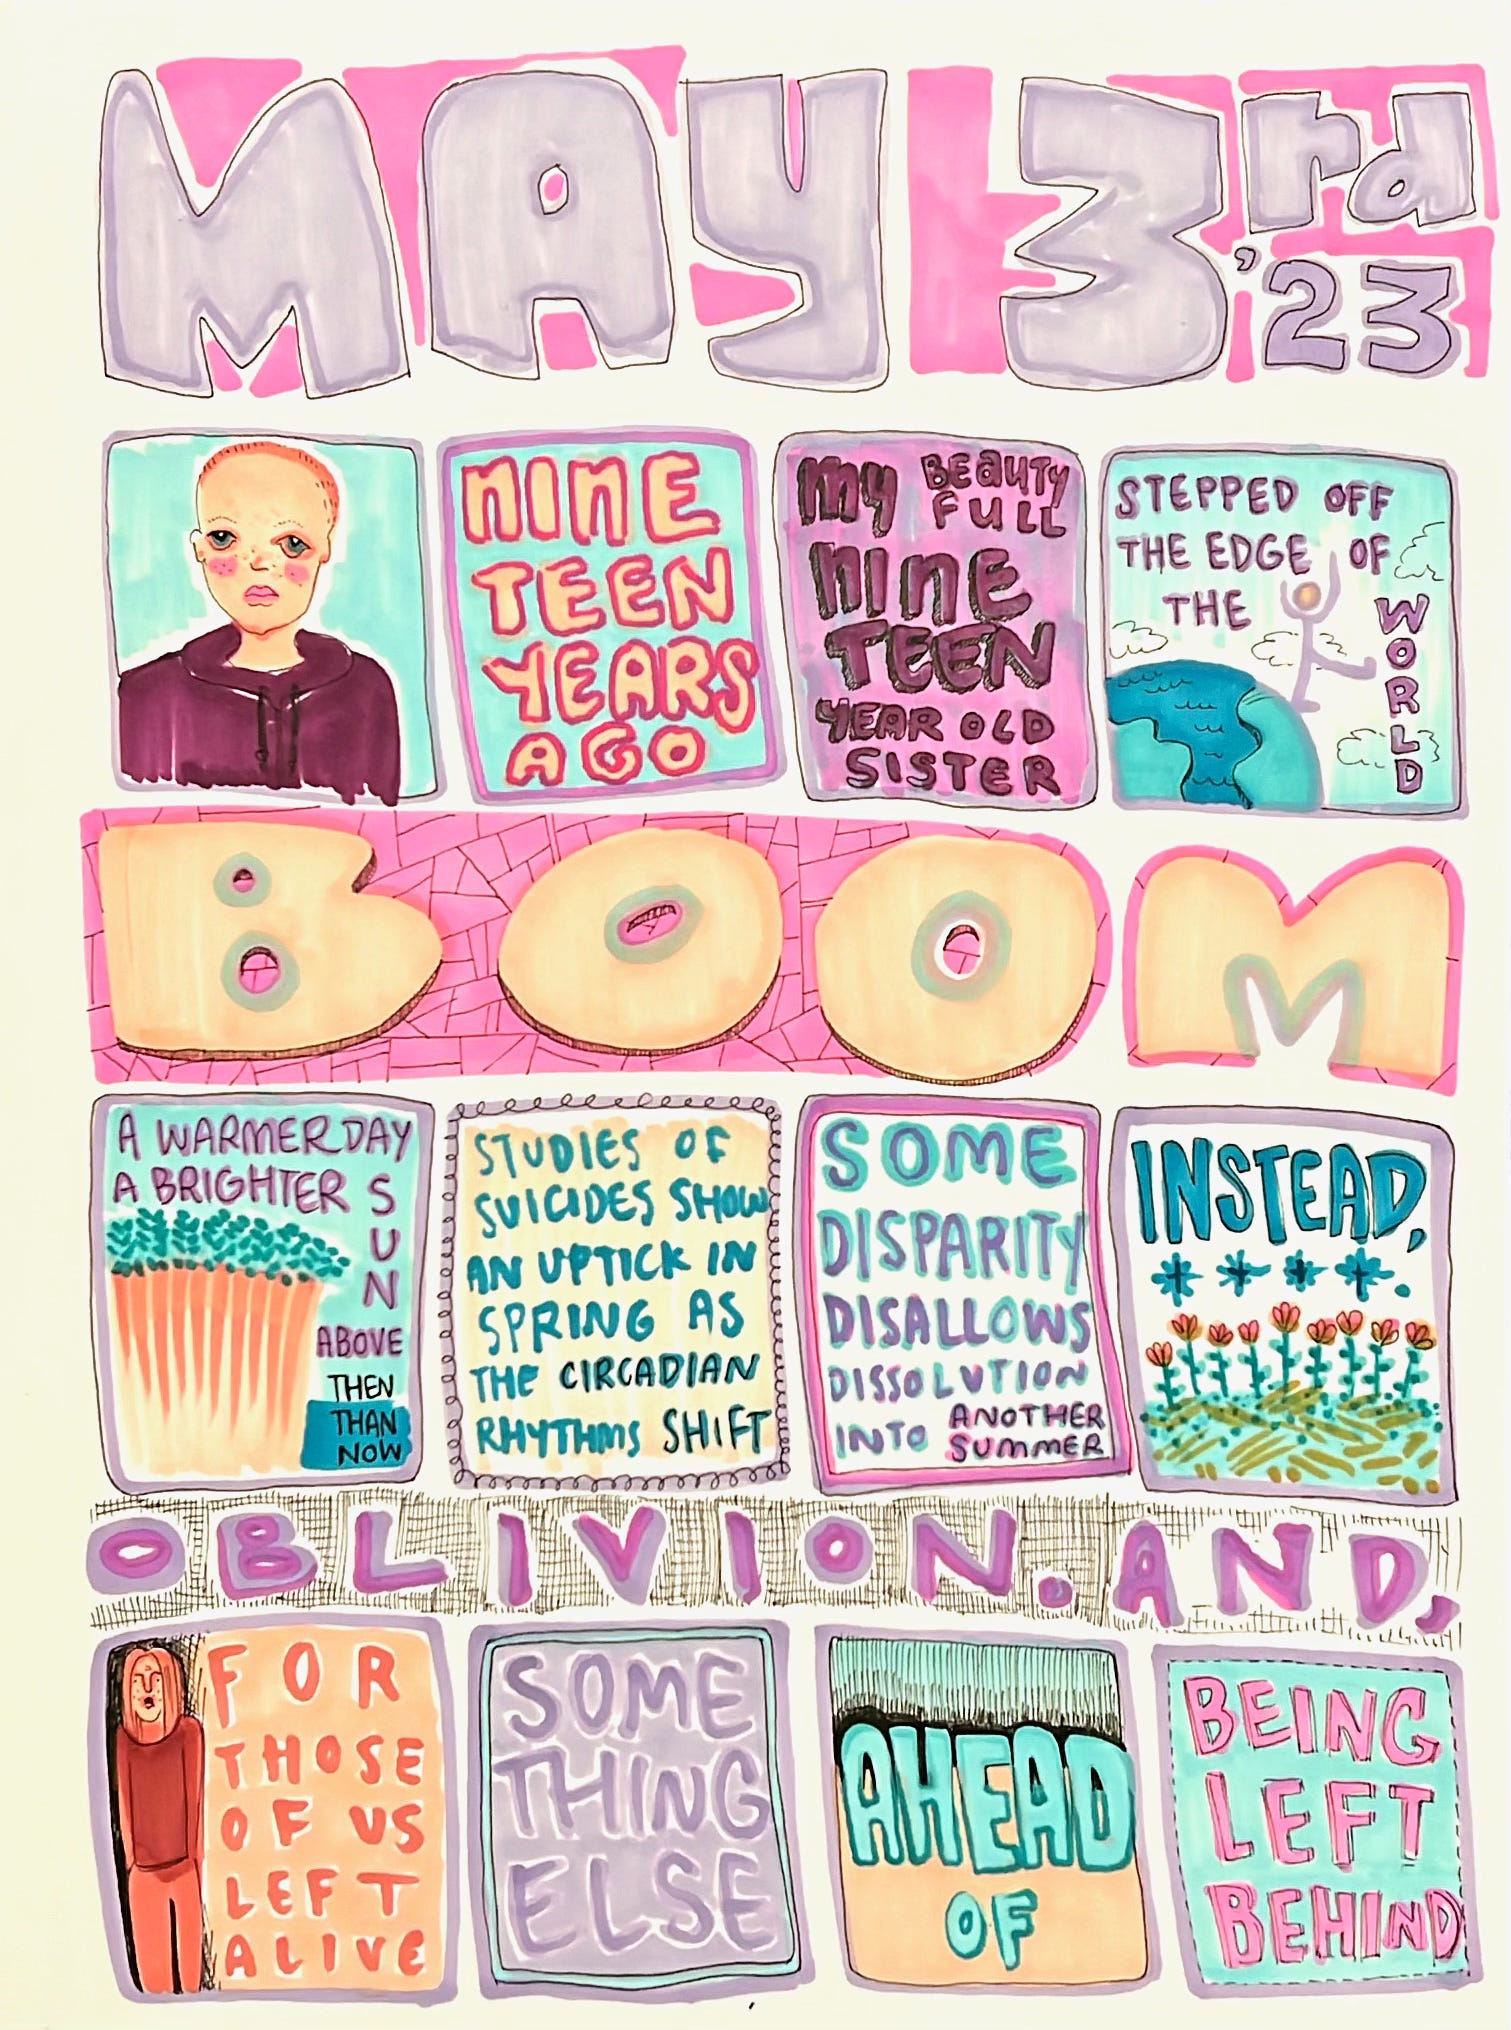 MAY 3rd
'23
NINE
TEEN
YEARS
AGO
MY BEAUTY
FULL
NINE
TEEN
YEAR OLD
SISTER
STEPPED OFF
THE EDGE OF
THE
WORLD
BOOM
A WARMER DAY
A BRIGHTER
SUN
ABOVE
THEN
THAN
NOW
STUDIES OF
SUICIDES SHOW
AN UPTICK IN
SPRING AS
THE CIRCADIAN
RHYTHMS SHIFT
SOME
DISPARITY
DISALLOWS
DISSOLUTION
INTO ANOTHER
SUMMER
INSTEAD,
OBLIVION. AND,
FOR
THOSE
OF US
LEFT
ALIVE
SOME
THING
ELSE
AHEAD
OF
BEING
LEFT
BEHIND